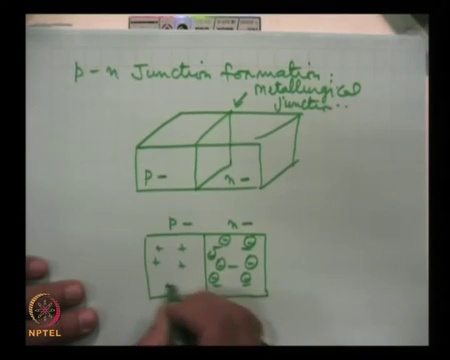 p-n Junction formation:
metallurgical
junction..
p- n-
p- n-
+ + ⊖ ⊖
+ + ⊖ ⊖ - ⊖
⊖ ⊖
NPTEL